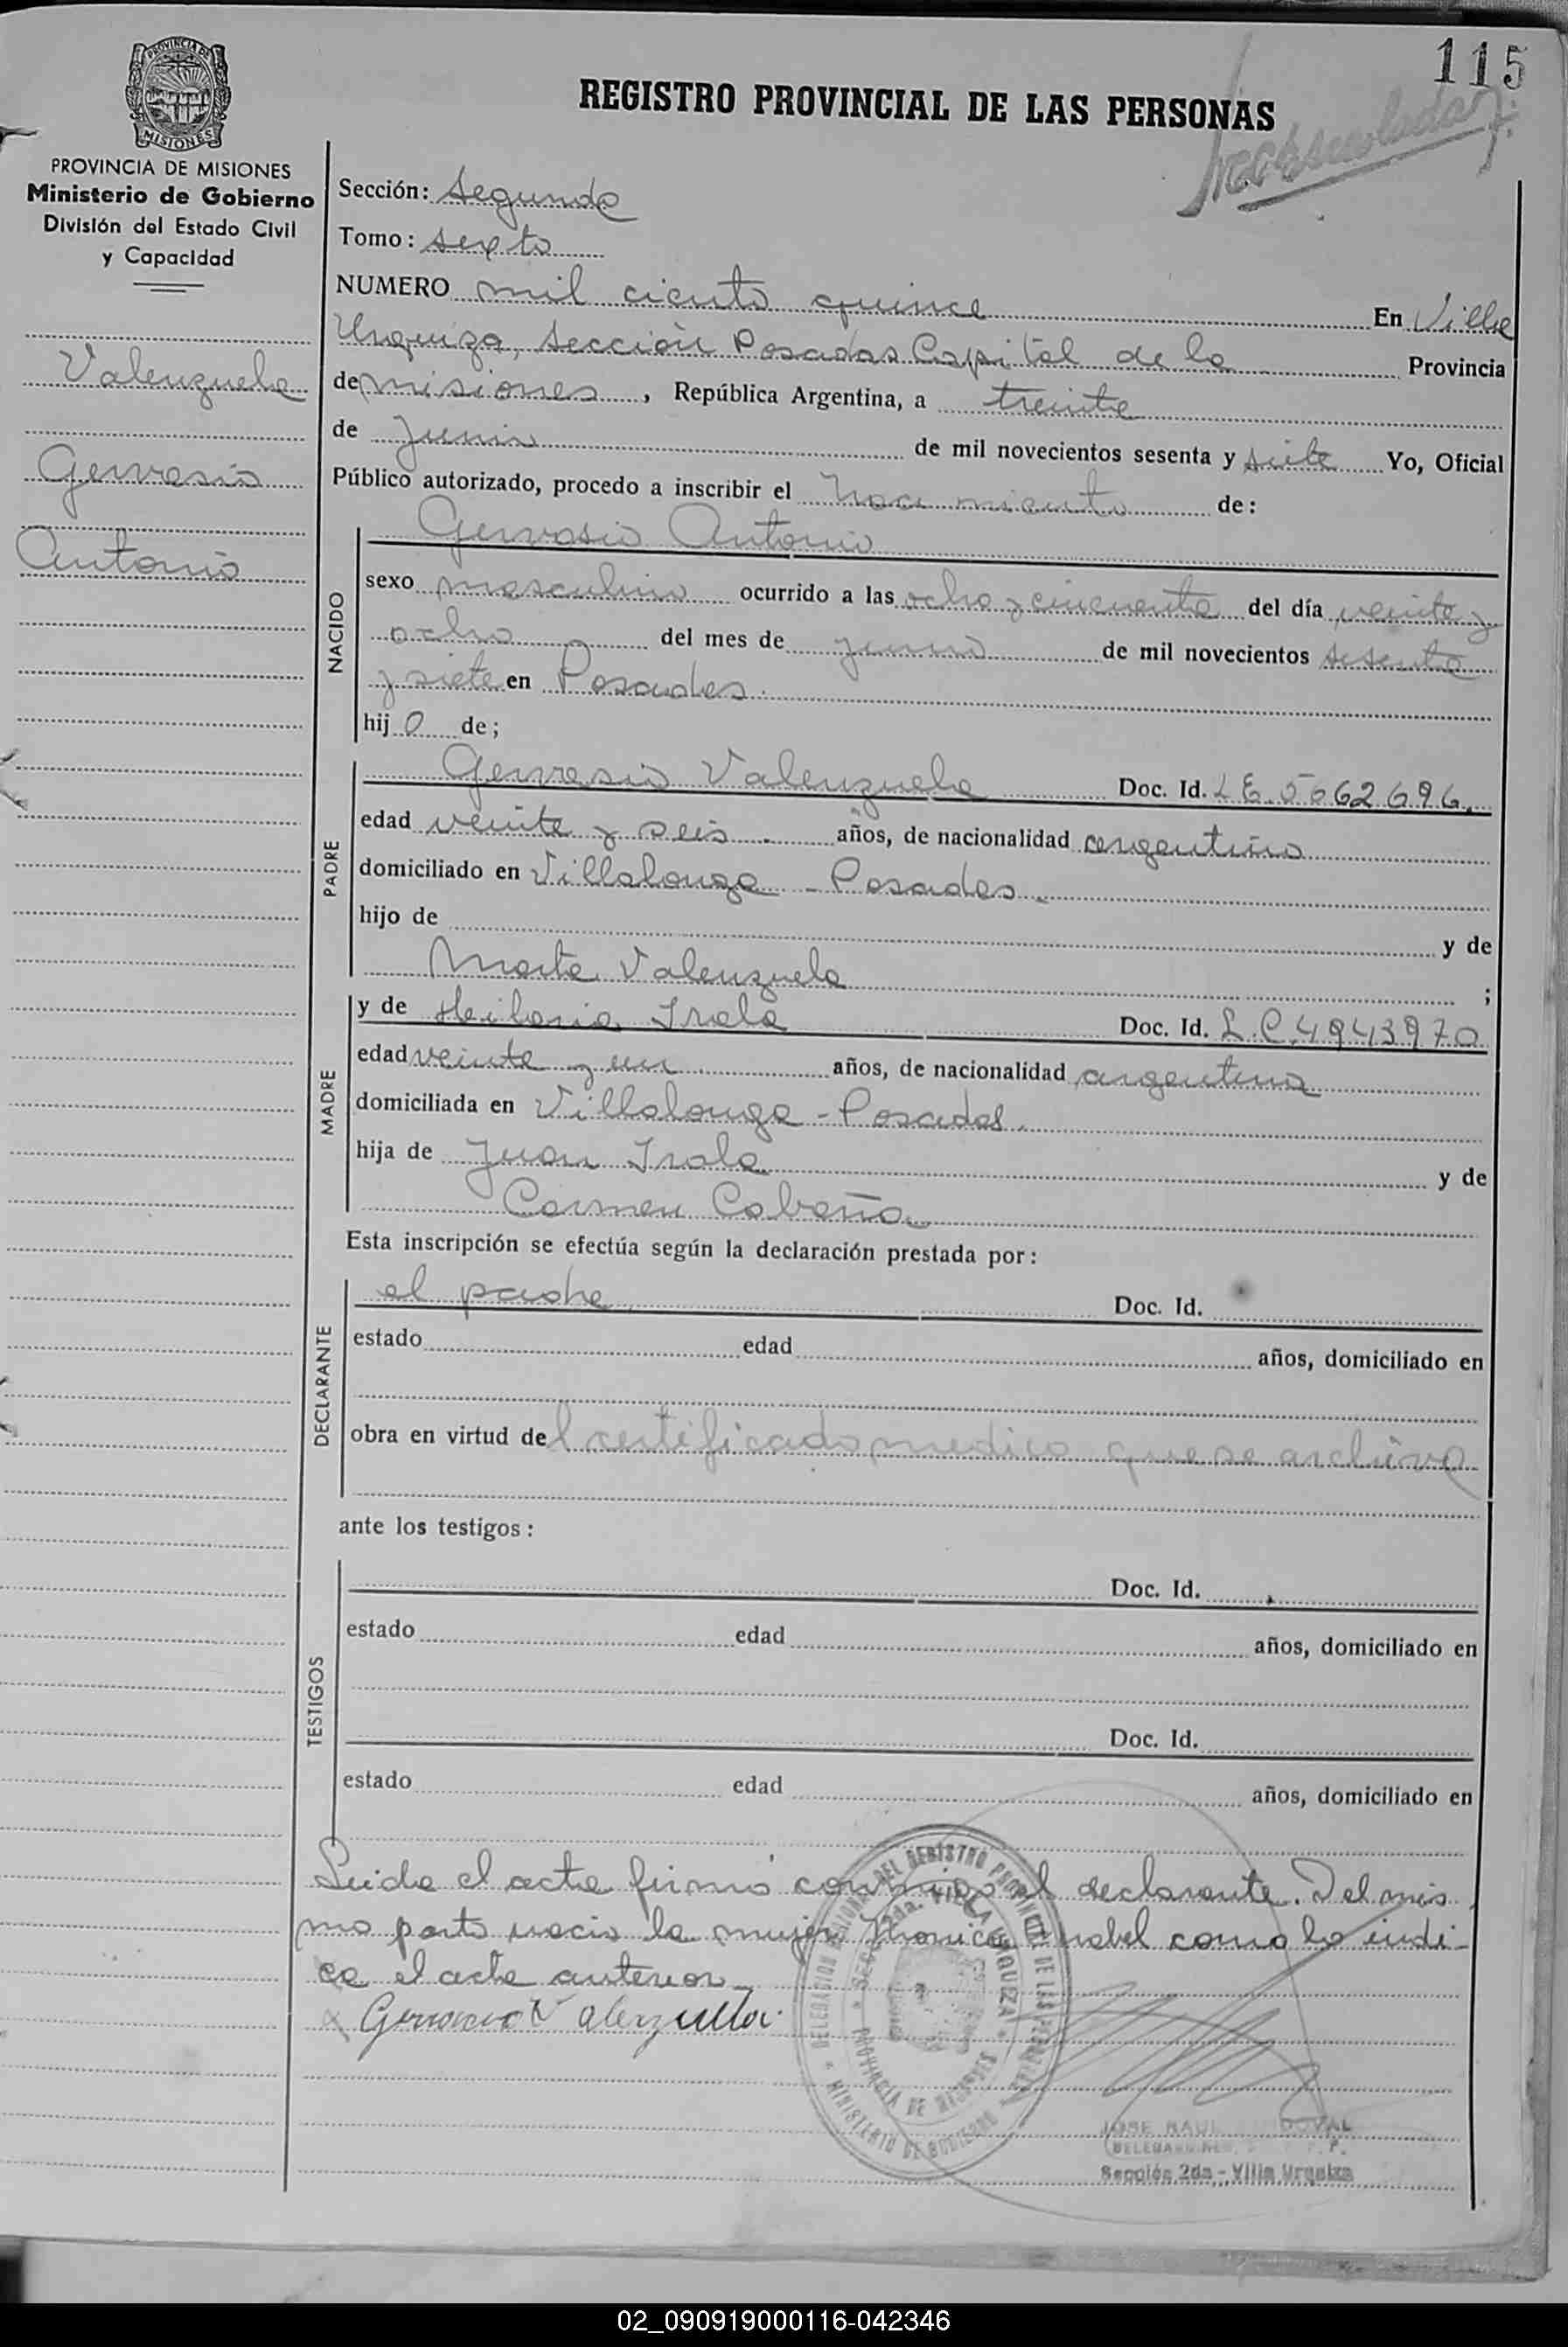 115
REGISTRO PROVINCIAL DE LAS PERSONAS
PROVINCIA DE
MISIONES
PROVINCIA DE MISIONES
Ministerio de Gobierno
División del Estado Civil
y Capacidad
Valenzuela
Gervasio
Antonio
Sección: Segunda
Tomo: sexto
NUMERO mil ciento quince En Villa
Urquiza, Sección Posadas Capital de la Provincia
de misiones, República Argentina, a treinta
de Junio de mil novecientos sesenta y siete Yo, Oficial
Público autorizado, procedo a inscribir el nacimiento de:
NACIDO
Gervasio Antonio
sexo masculino ocurrido a las ocho y cincuenta del día veinte y
ocho del mes de junio de mil novecientos sesenta
y siete en Posadas.
hijo de;
PADRE
Gervasio Valenzuela Doc. Id. L E. 5662696.
edad veinte y seis. años, de nacionalidad argentino
domiciliado en Villalonga - Posadas.
hijo de y de
Marta Valenzuela ;
MADRE
y de Hilaria Irala Doc. Id. L.C. 4943970
edad veinte y un años, de nacionalidad argentina
domiciliada en Villalonga - Posadas.
hija de Juan Irala y de
Carmen Cabaña
Esta inscripción se efectúa según la declaración prestada por:
DECLARANTE
el padre Doc. Id.
estado edad años, domiciliado en
obra en virtud del certificado medico que se archiva
ante los testigos:
TESTIGOS
Doc. Id.
estado edad años, domiciliado en
Doc. Id.
estado edad años, domiciliado en
Leida el acta firmó conmigo el declarante. Del mis
mo parto nacio la mujer Monica Anabel como lo indi-
ca el acta anterior
Gervasio Valenzuela
DEL REGISTRO PROVINCIAL DE LAS PERSONAS
MINISTERIO DE GOBIERNO
VILLA URQUIZA
PROVINCIA DE MISIONES
JOSE RAUL
Sección 2da - Villa Urquiza
02_090919000116-042346